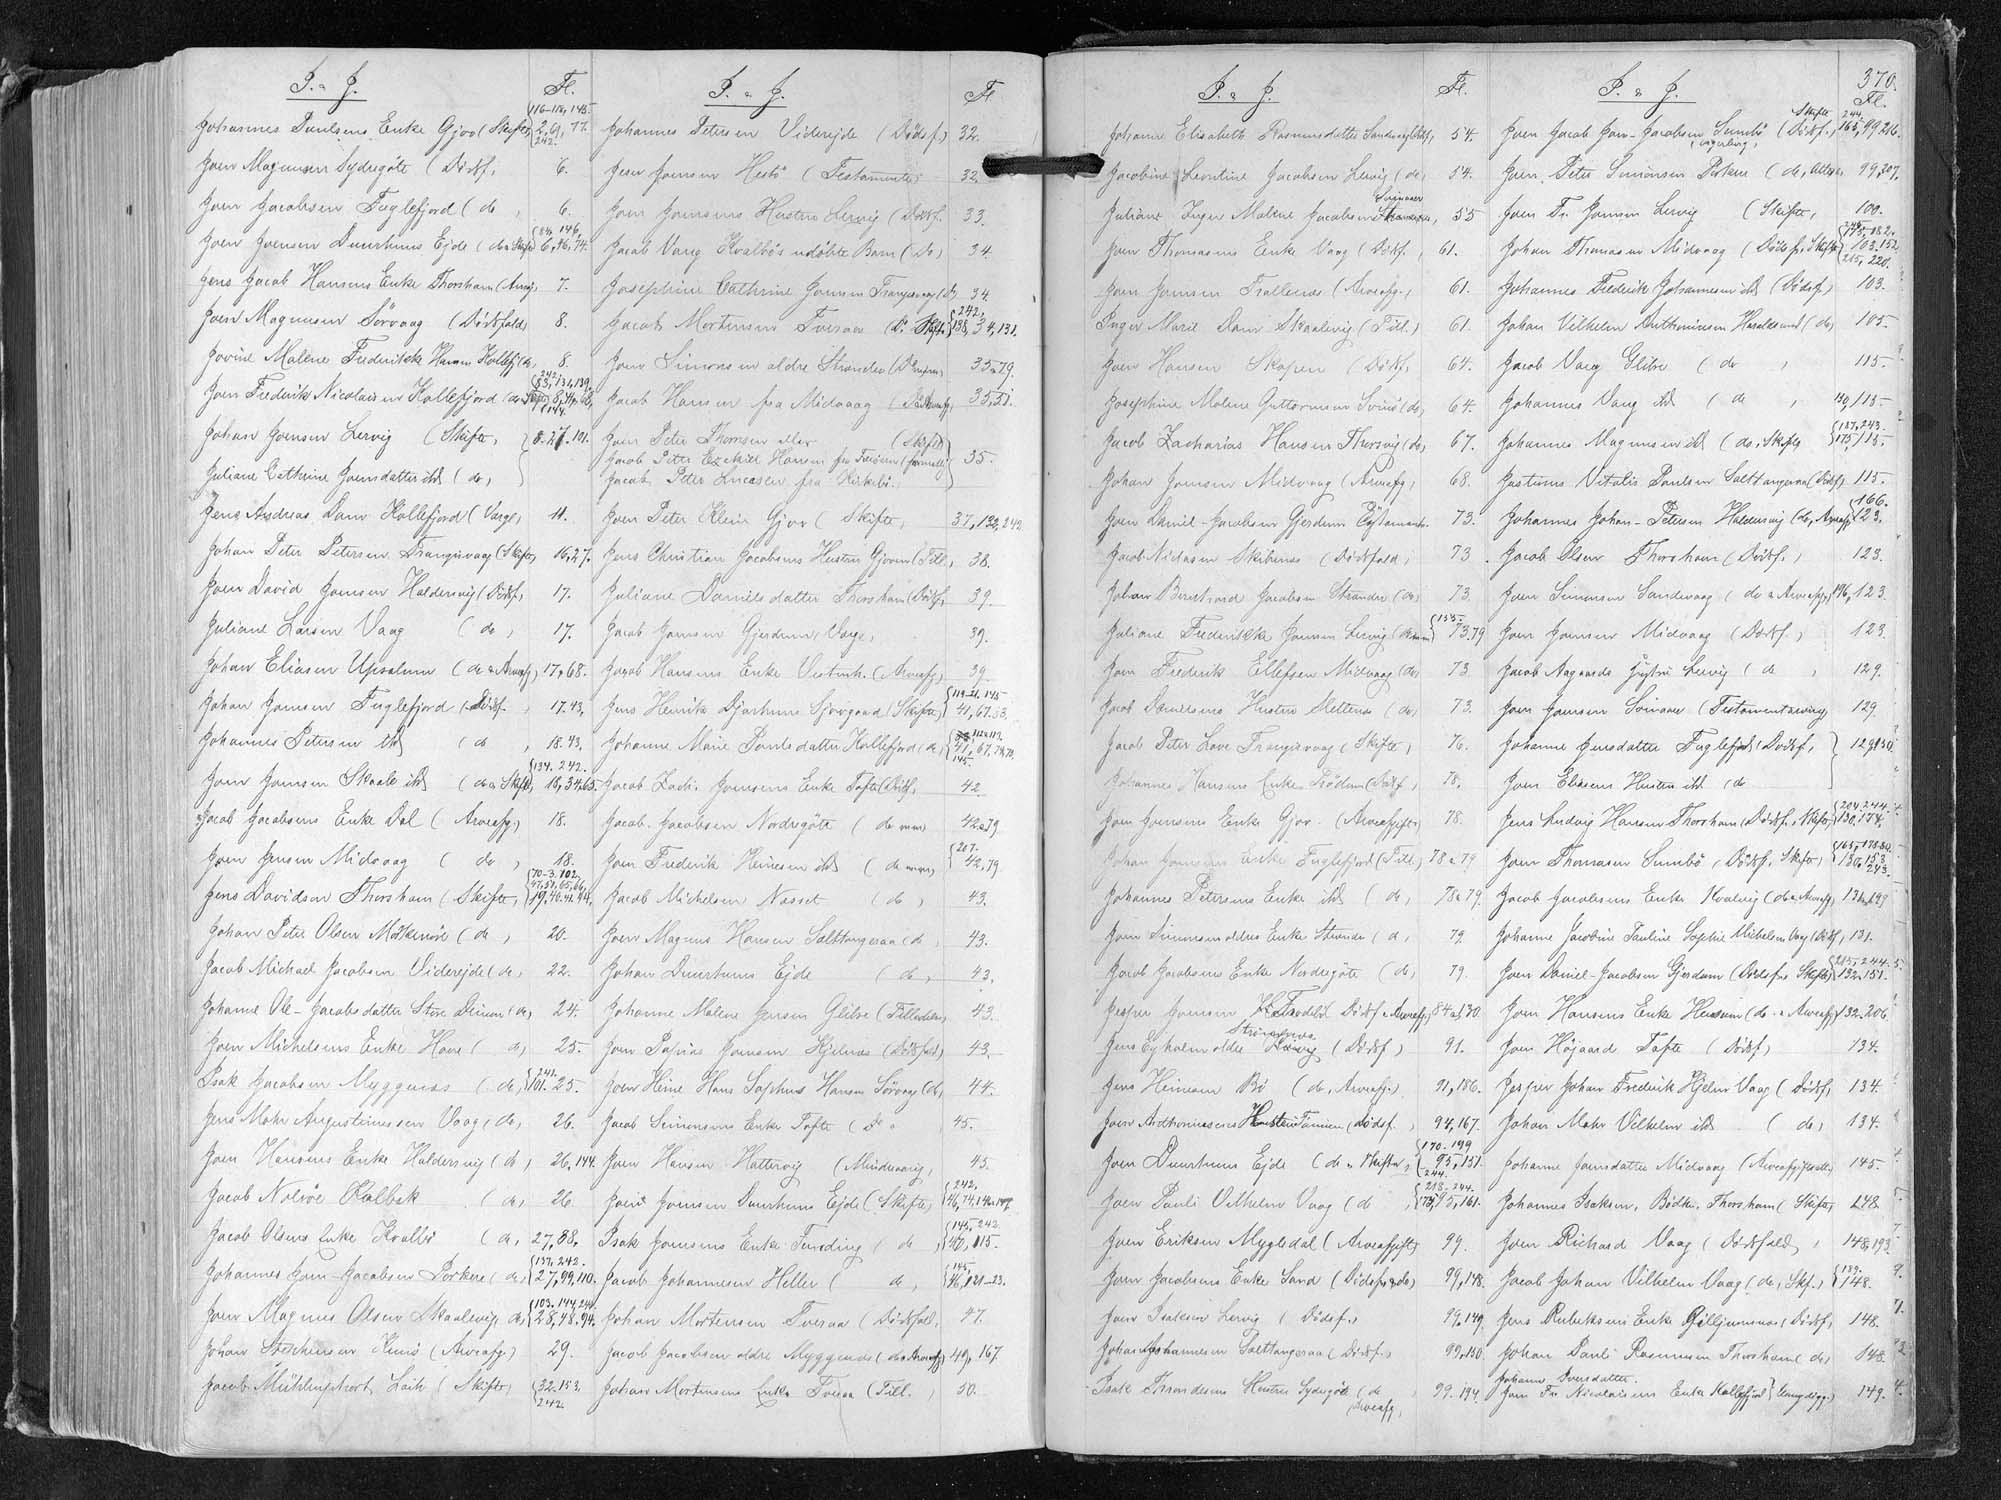 I. & J. Fl.
Johannes Paulsens Enke Gjov (Skifte, {116-118, 145. 2, 9, 77. 242.
Joen Magnussen Sydregöte (Dödsf, 6.
Joen Jacobsen Fuglefjord (do, 6.
Joen Joensen Duurhuus Ejde (do & Skifte) 6, 46, 74. 146,
Jens Jacob Hansens Enke Thorshavn (Arveafg, 7.
Joen Magnussen Sörvaag (Dödsfald) 8.
Jovine Malene Frederikke Hansen Kollefj (do, 8.
Joen Frederik Nicolaisen Kollefjord (do & Skifte) 8, 44, 68, 83, 131, 139, 242. 144.
Johan Joensen Lervig (Skifte, } 8. 27. 101.
Juliane Cathrine Joensdatter ibd (do, }
Jens Andreas Dam Kollefjord (Værge, 11.
Johan Peter Petersen Trangisvaag (Skifte, 16, 27.
Joen David Joensen Haldersvig (Dödsf, 17.
Juliane Larsen Vaag (do, 17.
Johan Eliasen Upsalum (do & Arveafg) 17, 68.
Johan Joensen Fuglefjord (Dödsf. 17. 43,
Johannes Petersen ibd (do, 18. 43,
Joen Joensen Skaale ibd (do & Skifte, {134. 242. 18, 34, 65.
Jacob Jacobsens Enke Dal (Arveafg.) 18.
Joen Jensen Midvaag (do, 18.
Jens Davidsen Thorshavn (Skifte, {70-3. 102, 47, 51, 65, 66, 19, 40. 41. 44.
Johan Peter Olsen Mölkeröre (do, 20.
Jacob Michael Jacobsen Viderejde (do, 22.
Johanne Ole-Jacobsdatter Store Dimon (do, 24.
Joen Michelsens Enke Hove (do, 25.
Isak Jacobsen Myggenæs (do, {241. 101. 25.
Jens Mohr Augustinussen Vaag (do, 26.
Joen Hansens Enke Haldersvig (do, 26, 144.
Jacob Nolsöe Kalbak (do, 26.
Jacob Olsens Enke Kvalbö (do, 27, 88.
Johannes Joen-Jacobsen Porkere (do, {137, 242. 27, 99, 110.
Joen Magnus Olsen Skaalevig (do, {103. 144, 241. 28, 48, 94.
Johan Stephensen Kunö (Arveafg.) 29.
Jacob Mühlenphort Leth (Skifte) {32. 153. 242.
I. & J. Fl.
Johannes Petersen Viderejde (Dödsf) 32.
Jesse Joensen Hestö (Testamente) 32.
Joen Joensens Hustru Lervig (Dödsf. 33.
Jacob Vang Kvalbös udöbte Barn (do) 34.
Josephine Cathrine Joensen Trangisvaag (do) 34.
Jacob Mortensen Tveraa (do Skft. {242, 138, 34, 131.
Joen Simonsen ældre Strænder 35 & 79.
Jacob Hansen fra Midvaag (do & Arveafg) 35, 51.
Joen Peter Thomsen eller (Skifte)
Jacob Peter Ezechiel Hansen fra } 35.
Jacob Peter Lucasen fra Kirkebö.
Joen Peter Klein Gjov (Skifte, 37, 132, 242
Jens Christian Jacobsens Hustru Gjoven (Till. 38.
Juliane Danielsdatter Thorshavn (Dödsf, 39.
Jacob Joensen Gjerdum, Værge, 39.
Jacob Hansens Enke (Arveafg) 39.
Jens Henrik Djurhuus Sjovgaard (Skifte) {119-21. 145 41, 67. 83.
Johanne Marie Poulsdatter Kollefjord (do, 41, 67, 145.
Jacob Zach. Joensens Enke Tofte (Dödsf, 42.
Jacob Jacobsen Nordregöte (do 42 & 79
Joen Frederik Heinesen ibd (do {207. 42, 79
Jacob Michelsen Næsset (do, 43.
Joen Magnus Hansen Salttangeraa (do 43.
Johan Duurhuus Ejde (do, 43.
Johanne Malene Jensen Glibre (Tilladelse, 43.
Joen Papinus Joensen Hjelnæs (Dödsfald) 43.
Joen Heine Hans Sophus Hansen Sörvaag (do, 44.
Jacob Simonsens Enke Tofte (do 45.
Joen Hansen Hattervig (Mindeaarig, 45.
Joen Joensen Duurhuus Ejde (Skifte, {242, 46, 74.
Isak Joensens Enke Funding (do, {145, 242. 40, 115.
Jacob Johannesen Heller (do, {145. 46, 121-23.
Johan Mortensen Tveraa (Dödsfal, 47.
Jacob Jacobsen ældre Myggenæs (do & Arveafg) 49, 167.
Johan Mortensens Enke Tveraa (Till. 50.
I. & J. Fl.
Johanne Elisabeth Rasmusdatter Sandvaag (Dödsf, 54.
Jacobine Leontine Jacobsen Lervig (do, 54.
Juliane Inger Malene Jacobsen Svinaaer 55
Joen Thomasens Enke Vaag (Dödsf. 61.
Joen Joensen Trallenæs (Arveafg.) 61.
Inger Marie Dam Skaalevig (Till.) 61.
Joen Hansen Skopen (Dödsf, 64.
Josephine Malene Guttormsen Svinö (do, 64.
Jacob Zacharias Hansen Thorsvig (do, 67.
Johan Joensen Midvaag (Arveafg, 68.
Joen Daniel-Jacobsen Gjerdum Testament. 73.
Jacob Niclasen Skibenæs (Dödsfald, 73.
Johan Berntard Jacobsen Strænder (do) 73.
Juliane Frederikke Joensen Lervig {155. 73. 79
Joen Frederik Ellefsen Midvaag (do) 73
Jacob Danielsens Hustru Slettenæs (do) 73.
Jacob Peter Lave Trangisvaag (Skifte) 76.
Johannes Hansens Enke Trödum (Dödsf, 78.
Joen Joensens Enke Gjov. (Arveafgift) 78.
Johan Joensens Enke Fuglefjord (Till.) 78 & 79
Johannes Petersens Enke ibd (do, 78 & 79.
Joen Simonsen ældres Enke Strænde (do, 79.
Jacob Jacobsens Enke Nordregöte (do, 79.
Jesper Joensen Trodelid Dödsf & Arveafg, 84 & 130.
Jens Eyholm ældre Strömnæs (Dödsf.) 91.
Jens Heinesen Bö (do, Arveafg.) 91, 186.
Joen Anthoniusens Hustru Famien (Dödsf. 94, 167.
Joen Duurhuus Ejde (do & Skifte, {170. 199 95, 151. 244.
Joen Pauli Vilhelm Vaag (do, {218. 244. 95, 161.
Joen Eriksen Mygledal (Arveafgift) 99.
Joen Jacobsens Enke Sand (Dödsf & do) 99, 148.
Joen Isaksen Lervig (Dödsf.) 99. 149,
Johan Johannesen Salttangeraa (Dödsf.) 99, 150.
Isak Throndesens Hustru Sydregöte (do, Arveafg, 99. 194.
370.
I. & J. Fl.
Joen Jacob Joen-Jacobsen Sumbö (Dödsf, Skifte 244. 165, 99, 216.
Joen Peter Simonsen Porkere (do, 99, 207.
Joen Fr. Joensen Lervig (Skifte, 100.
Johan Thomasen Midvaag (Dödsf, Skifte {245, 182. 103, 152, 215, 220.
Johannes Frederik Johannesen ibd (Dödsf.) 103.
Johan Vilhelm Anthoniussen Haraldssund (do) 105.
Jacob Vaag Glibre (do, 115.
Johannes Vang ibd (do, 110, 115.
Johannes Magnussen ibd (do, Skifte {187, 243. 175, 115.
Justinus Vitalis Poulsen Salttangeraa (Dödsf, 115.
Johannes Johan-Petersen Haldersvig (do, Arveafg {166. 123.
Jacob Olsen Thorshavn (Dödsf.) 123.
Joen Simonsen Sandevaag (do & Arveafg, 196, 123.
Joen Joensen Midvaag (Dödsf.) 123.
Jacob Aagaards Hustru Lervig (do, 129.
Joen Joensen Svinaaer (Testamentarving) 129.
Johanne Jensdatter Fuglefjord (Dödsf, } 129, 130.
Joen Eliasens Hustru ibd (do }
Jens Ludvig Hansen Thorshavn (Dödsf. & Skifte) {204. 244. 130. 174,
Joen Thomasen Sumbö (Dödsf. Skifte) 130, 158 243.
Jacob Jacobsens Enke Kvalvig (do & Arveafg) 131 & 149
Johanne Jacobine Pauline Sophie Michelsen Vaag (Dödsf, 131.
Joen Daniel-Jacobsen Gjerdum (Dödsf & Skifte) {215. 244. 132. 151.
Joen Hansens Enke Husum (do & Arveafg) 132. 206.
Joen Höjgaard Tofte (Dödsf) 134.
Jesper Johan Frederik Hjelm Vaag (Dödsf, 134.
Johan Mohr Vilhelm ibd (do, 134.
Johanne Joensdatter Midvaag 145.
Johannes Isaksen, Bödker, Thorshavn (Skifte, 148
Joen Richard Vaag (Dödsfald, 148, 193.
Jacob Johan Vilhelm Vaag (do, Skf.) {189. 148.
Jens Rubeksens Enke Gilljumnæs (Dödsf, 148.
Johan Pauli Rasmussen Thorshavn (do, 148.
Johanne Sversdatter.
Joen Fr. Nicolaisens Enke Kollefjord 149.